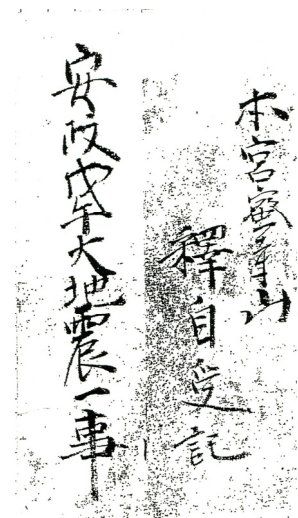 本宮蜜山
釋自受記
安政戊午大地震一事